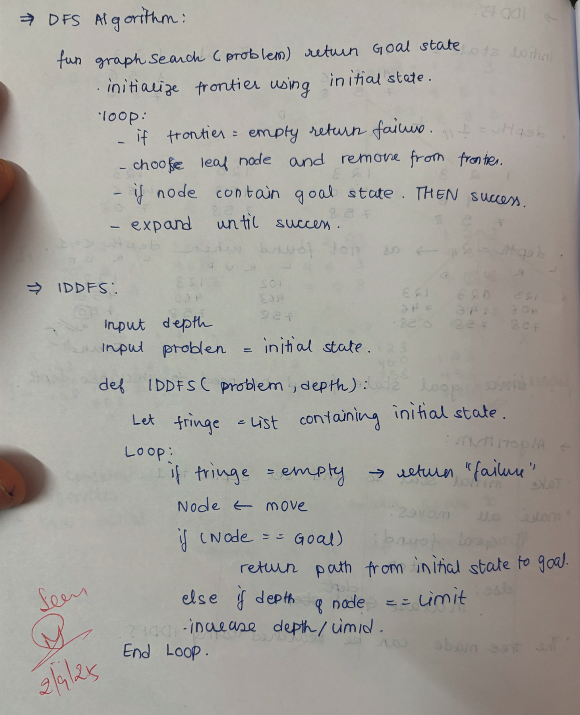 ⇒ DFS Algorithm:
fun graph search (problem) return Goal state
· initialize frontier using initial state.
·loop:
- if frontier = empty return failure.
- choose leaf node and remove from frontier.
- if node contain goal state. THEN success.
- expand until success.
⇒ IDDFS:
Input depth
Input problem = initial state.
def IDDFS( problem, depth):
Let fringe = List containing initial state.
Loop:
if fringe = empty → return "failure"
Node ← move
if (Node == Goal)
return path from initial state to goal.
else if depth of node == Limit
-increase depth/limit.
End Loop.
Seen
2/9/25